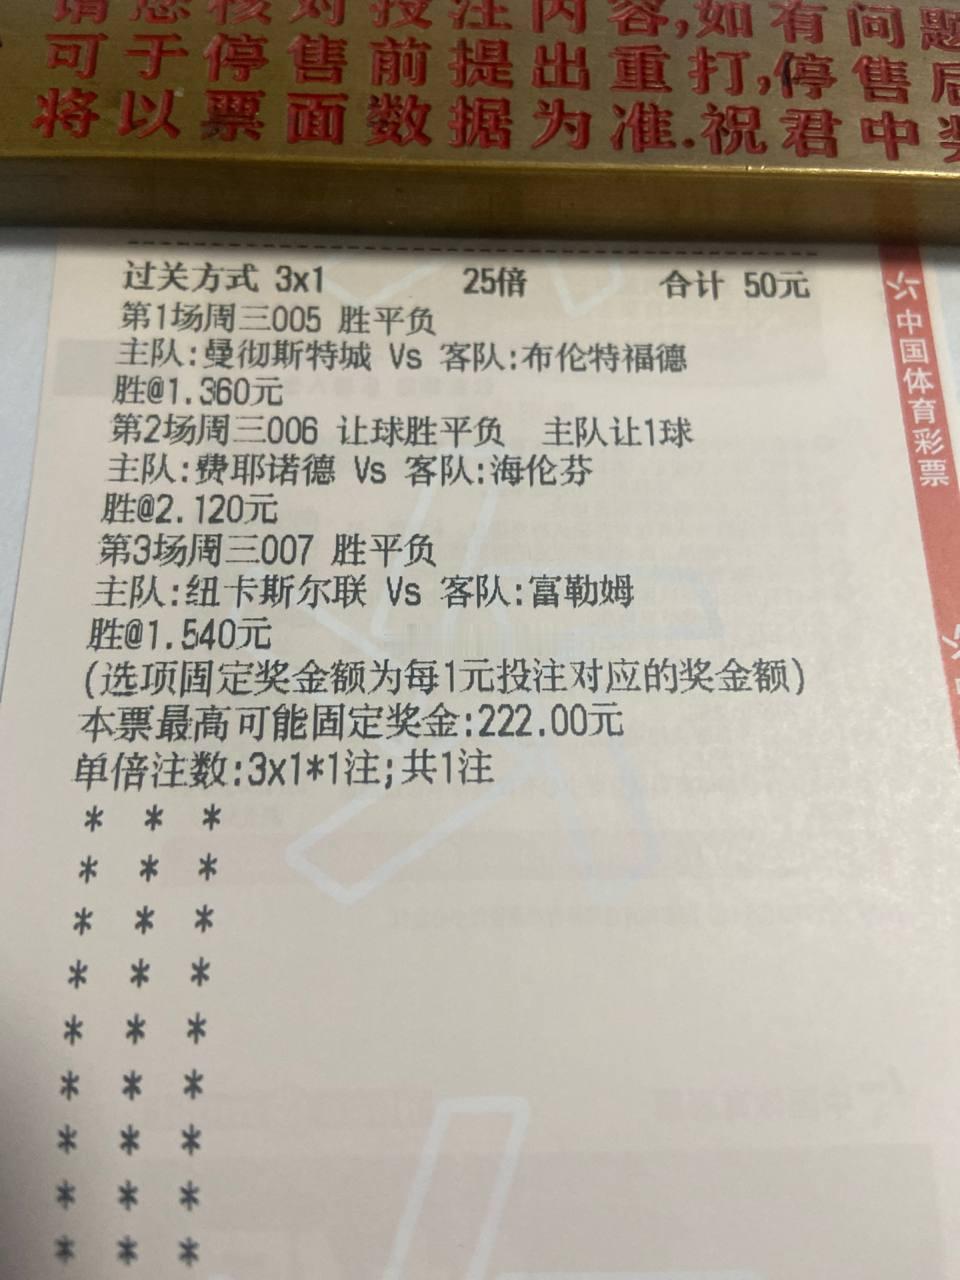 请您核对投注内容,如有问题
可于停售前提出重打,停售后
将以票面数据为准.祝君中奖
过关方式 3x1 25倍 合计 50元
第1场周三005 胜平负
主队:曼彻斯特城 Vs 客队:布伦特福德
胜@1.360元
第2场周三006 让球胜平负 主队让1球
主队:费耶诺德 Vs 客队:海伦芬
胜@2.120元
第3场周三007 胜平负
主队:纽卡斯尔联 Vs 客队:富勒姆
胜@1.540元
(选项固定奖金额为每1元投注对应的奖金额)
本票最高可能固定奖金:222.00元
单倍注数:3x1*1注;共1注
* * *
* * *
* * *
* * *
* * *
* * *
* * *
* * *
* * *
中国体育彩票